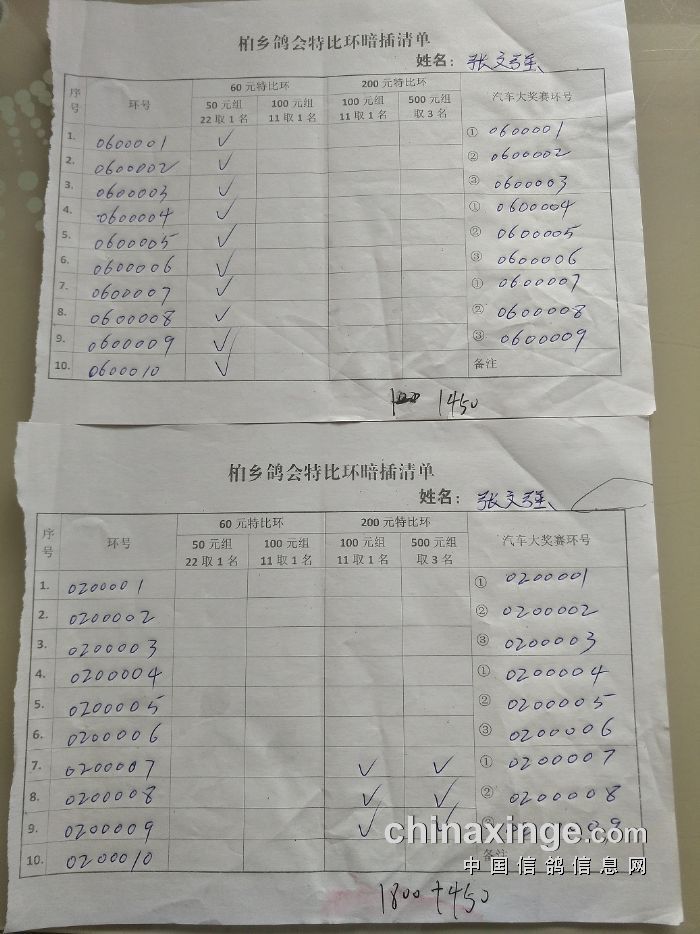 柏乡鸽会特比环暗插清单
姓名: 张文强
序号 环号 60元特比环 200元特比环 汽车大奖赛环号
50元组 100元组 100元组 500元组
22取1名 11取1名 11取1名 取3名
1. 0600001 ✓ ① 0600001
2. 0600002 ✓ ② 0600002
3. 0600003 ✓ ③ 0600003
4. 0600004 ✓ ① 0600004
5. 0600005 ✓ ② 0600005
6. 0600006 ✓ ③ 0600006
7. 0600007 ✓ ① 0600007
8. 0600008 ✓ ② 0600008
9. 0600009 ✓ ③ 0600009
10. 0600010 ✓ 备注
1450
柏乡鸽会特比环暗插清单
姓名: 张文强
序号 环号 60元特比环 200元特比环 汽车大奖赛环号
50元组 100元组 100元组 500元组
22取1名 11取1名 11取1名 取3名
1. 0200001 ① 0200001
2. 0200002 ② 0200002
3. 0200003 ③ 0200003
4. 0200004 ① 0200004
5. 0200005 ② 0200005
6. 0200006 ③ 0200006
7. 0200007 ✓ ✓ ① 0200007
8. 0200008 ✓ ✓ ② 0200008
9. 0200009 ✓ ✓ ③
10. 0200010 备注
chinaxinge.com
中国信鸽信息网
1800+450